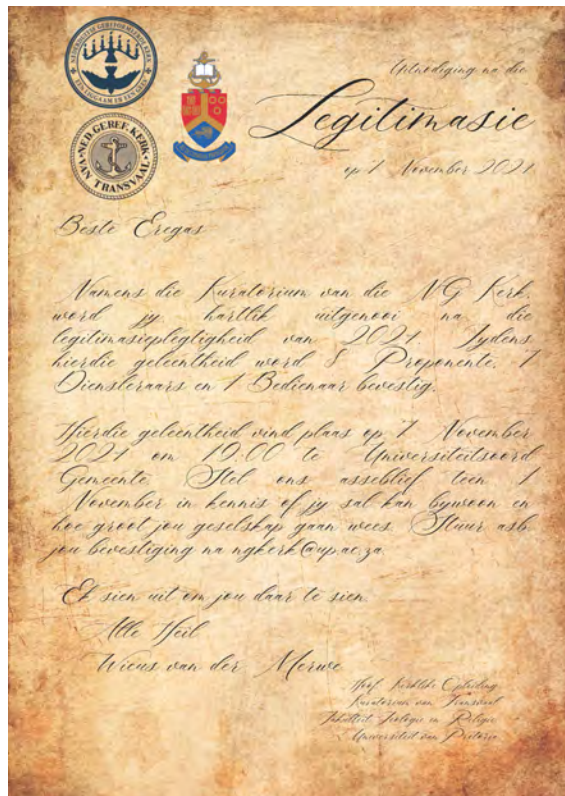 NEDERDUITSE GEREFORMEERDE KERK
NED. GEREF. KERK
VAN TRANSVAAL
Uitnodiging na die
Legitimasie
op 7 November 2021
Beste Eregas
Namens die Kuratorium van die NG Kerk,
word jy hartlik uitgenooi na die
legitimasieplegtigheid van 2021. Tydens
hierdie geleentheid word 8 Proponente, 7
Diensleraars en 1 Bedienaar bevestig.
Hierdie geleentheid vind plaas op 7 November
2021 om 19:00 te Universiteitsoord
Gemeente. Stel ons asseblief teen 1
November in kennis of jy sal kan bywoon en
hoe groot jou geselskap gaan wees. Stuur asb.
jou bevestiging na ngkerk@up.ac.za.
Ek sien uit om jou daar te sien.
Alle Heil
Wicus van der Merwe
Hoof: Kerklike Opleiding
Kuratorium van Transvaal
Fakulteit Teologie en Religie
Universiteit van Pretoria